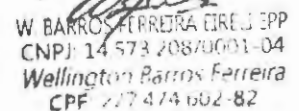 W. BARROS FERREIRA EIRELI EPP
CNPJ: 14 573 208/0001-04
Wellington Barros Ferreira
CPF: 277 474 602-82